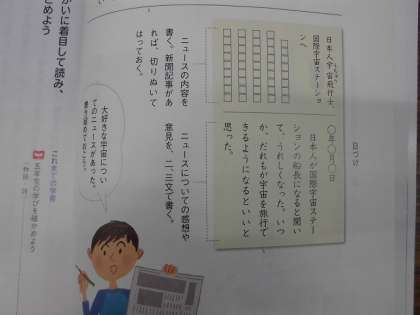 日づけ
○年○月○日
日本人が国際宇宙ステー
ションの船長になると聞い
て、うれしくなった。いつ
か、だれもが宇宙を旅行で
きるようになるといいと
思った。
日本人宇宙飛行士、
国際宇宙ステーショ
ンへ
ニュースの内容を
書く。新聞記事があ
れば、切りぬいて
はっておく。
ニュースについての感想や
意見を、二、三文で書く。
大好きな宇宙につい
てのニュースがあった。
書き留めておこう。
がいに着目して読み、
とめよう
これまでの学習
五年生の学びを確かめよう